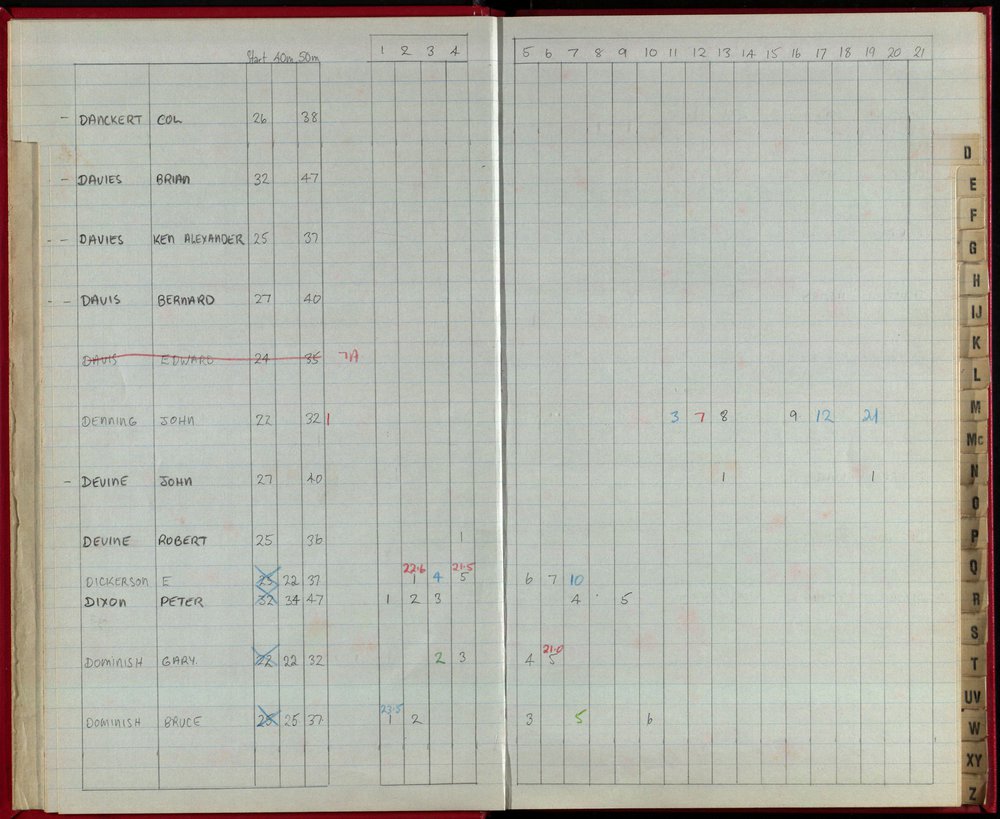 Start 40m 50m 1 2 3 4 5 6 7 8 9 10 11 12 13 14 15 16 17 18 19 20 21
- DANCKERT COL 26 38
- DAVIES BRIAN 32 47
- - DAVIES KEN ALEXANDER 25 37
- - DAVIS BERNARD 27 40
DAVIS EDWARD 24 35
DENNING JOHN 22 32 1 3 7 8 9 12 21
- DEVINE JOHN 27 40 1 1
DEVINE ROBERT 25 36 1
22.6 21.5
DICKERSON E 25 22 37 1 4 5 6 7 10
DIXON PETER 32 34 47 1 2 3 4 5
21.0
DOMINISH GARY. 22 22 32 2 3 4 5
23.5
DOMINISH BRUCE 25 25 37 1 2 3 5 6
D
E
F
G
H
IJ
K
L
M
Mc
N
O
P
Q
R
S
T
UV
W
XY
Z